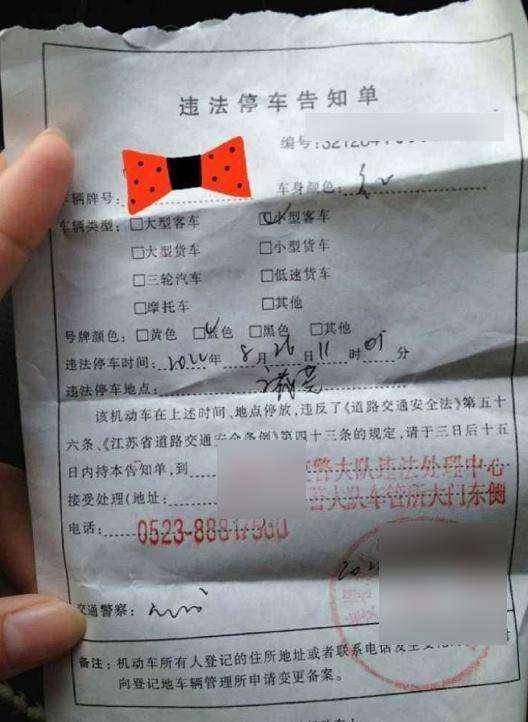 违法停车告知单
编号:
车辆牌号: 车身颜色:
车辆类型: □大型客车 □小型客车
□大型货车 □小型货车
□三轮汽车 □低速货车
□摩托车 □其他
号牌颜色: □黄色 □蓝色 □黑色 □其他
违法停车时间: 2022年 8月26日11时05分
违法停车地点:
该机动车在上述时间、地点停放,违反了《道路交通安全法》第五十
六条、《江苏省道路交通安全条例》第四十三条的规定,请于三日后十五
日内持本告知单,到 警大队违法处理中心
接受处理(地址: 大队车管所大门东侧
电话: 0523-888
交通警察:
备注: 机动车所有人登记的住所地址或者联系电话发生变
向登记地车辆管理所申请变更备案。